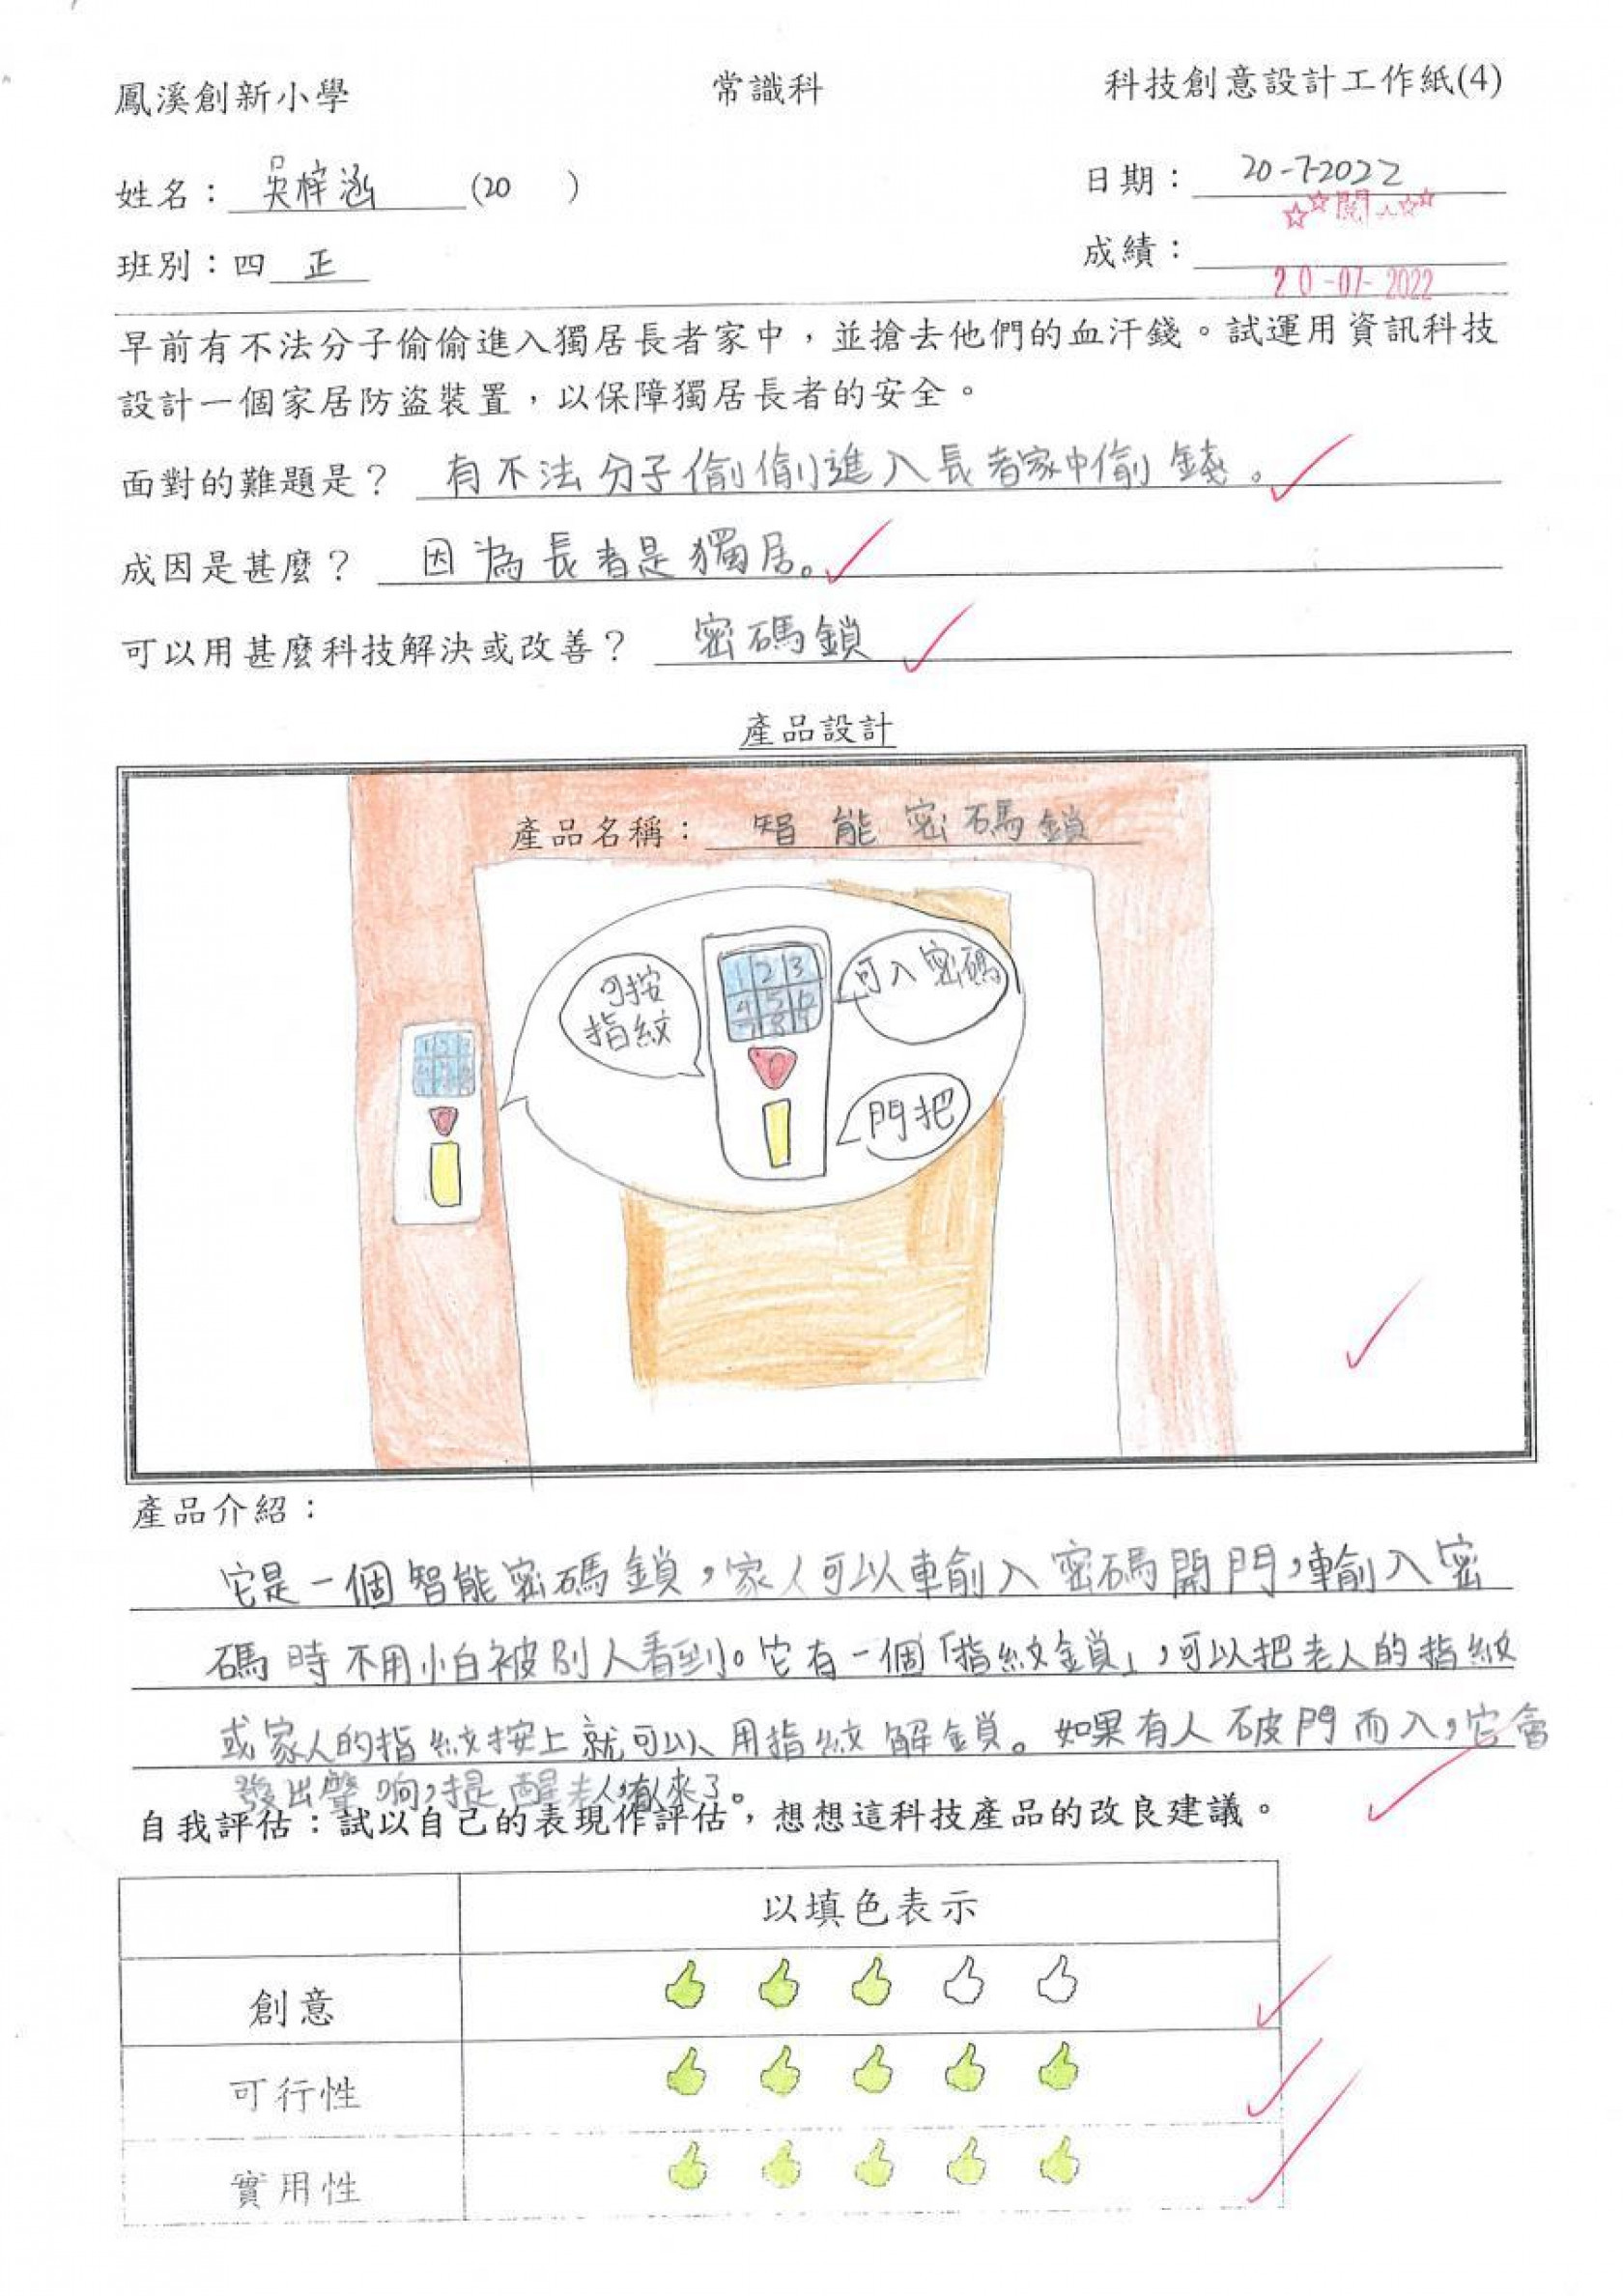 鳳溪創新小學 常識科 科技創意設計工作紙(4)
姓名：吳梓涵 (20 ) 日期：20-7-2022
閱
班別：四 正 成績：
20-07-2022
早前有不法分子偷偷進入獨居長者家中，並搶去他們的血汗錢。試運用資訊科技
設計一個家居防盜裝置，以保障獨居長者的安全。
面對的難題是？ 有不法分子偷偷進入長者家中偷錢。
成因是甚麼？ 因為長者是獨居。
可以用甚麼科技解決或改善？ 密碼鎖
產品設計
產品名稱：智能密碼鎖
可按
指紋
1 2 3
4 5 6
7 8 9
可入密碼
門把
1 2 3
產品介紹：
它是一個智能密碼鎖，家人可以輸入密碼開門，輸入密
碼時不用怕被別人看到。它有一個「指紋鎖」，可以把老人的指紋
或家人的指紋按上就可以用指紋解鎖。如果有人破門而入，它會
發出聲响，提醒老人，有人來了。
自我評估：試以自己的表現作評估，想想這科技產品的改良建議。
以填色表示
創意
可行性
實用性